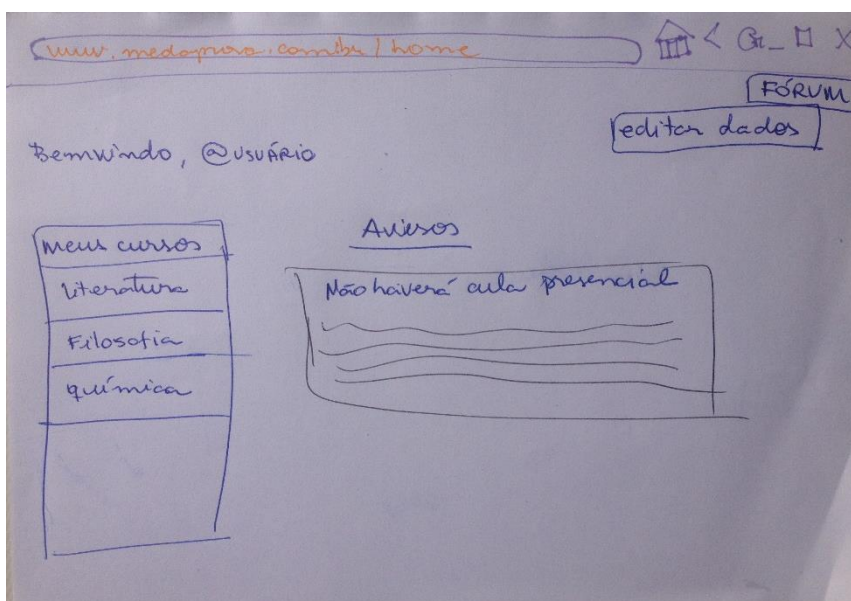 www.medaprova.com.br/home
FÓRUM
editar dados
Bemvindo, @USUÁRIO
Meus cursos
Literatura
Filosofia
química
Avisos
Não haverá aula presencial